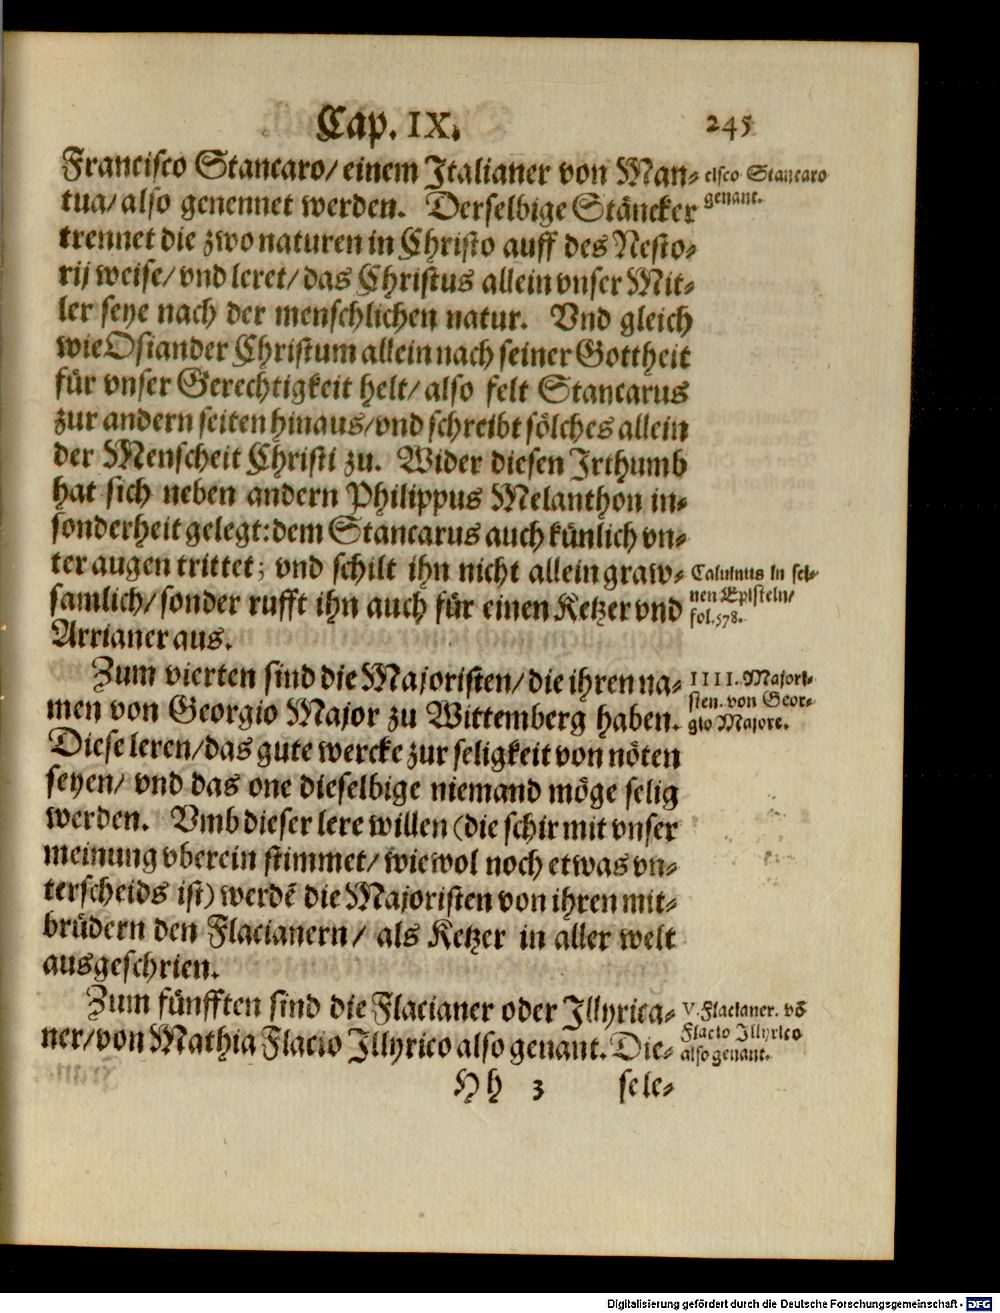 Cap. IX. 245
Francisco Stancaro/ einem Italianer von Man-
tua/ also genennet werden. Derselbige Stäncker
trennet die zwo naturen in Christo auff des Nesto-
rij weise/ vnd leret/ das Christus allein vnser Mit-
ler seye nach der menschlichen natur. Vnd gleich
wie Osiander Christum allein nach seiner Gottheit
für vnser Gerechtigkeit helt/ also felt Stancarus
zur andern seiten hinaus/ vnd schreibt sölches allein
der Menscheit Christi zu. Wider diesen Irthumb
hat sich neben andern Philippus Melanthon in-
sonderheit gelegt: dem Stancarus auch künlich vn-
ter augen trittet; vnd schilt ihn nicht allein graw-
samlich/ sonder rufft ihn auch für einen Ketzer vnd
Arrianer aus.
Zum vierten sind die Majoristen/ die ihren na-
men von Georgio Major zu Wittemberg haben.
Diese leren/ das gute wercke zur seligkeit von nöten
seyen/ vnd das one dieselbige niemand möge selig
werden. Vmb dieser lere willen (die schir mit vnser
meinung vberein stimmet/ wiewol noch etwas vn-
terscheids ist) werdē die Majoristen von ihren mit-
brüdern den Flacianern/ als Ketzer in aller welt
ausgeschrien.
Zum fünfften sind die Flacianer oder Illyrica-
ner/ von Mathia Flacio Illyrico also genant. Die-
Hh 3 sele-
cisco Stancaro
genant.
Caluinus in sei-
nen Episteln/
fol. 578.
IIII. Majori-
sten. von Geor-
gio Majore.
V. Flacianer. vō
Flacio Illyrico
also genant.
Digitalisierung gefördert durch die Deutsche Forschungsgemeinschaft - DFG